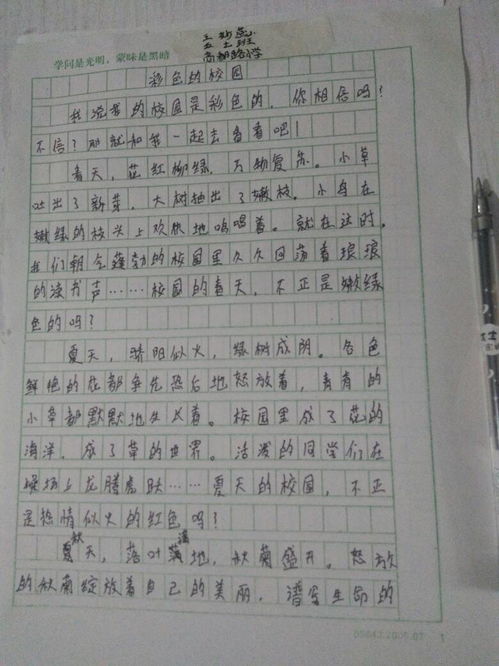 五七班
商都路小学
学问是光明，蒙昧是黑暗
彩色的校园
我说我的校园是彩色的，你相信吗？
不信？那就和我一起去看看吧！
春天，花红柳绿，万物复苏。小草
吐出了新芽，大树抽出了嫩枝。小鸟在
嫩绿的枝头上欢快地鸣唱着。就在这时，
我们朝气蓬勃的校园里久久回荡着琅琅
的读书声……校园的春天，不正是嫩绿
色的吗？
夏天，骄阳似火，绿树成阴。各色
鲜艳的花都争先恐后地怒放着，青青的
小草都默默地生长着。校园里成了花的
海洋，成了草的世界。活泼的同学们在
操场上龙腾虎跃……夏天的校园，不正
是热情似火的红色吗？
秋天，落叶满地，秋菊盛开。怒放
的秋菊绽放着自己的美丽，谱写生命的
05642.2005.07 1